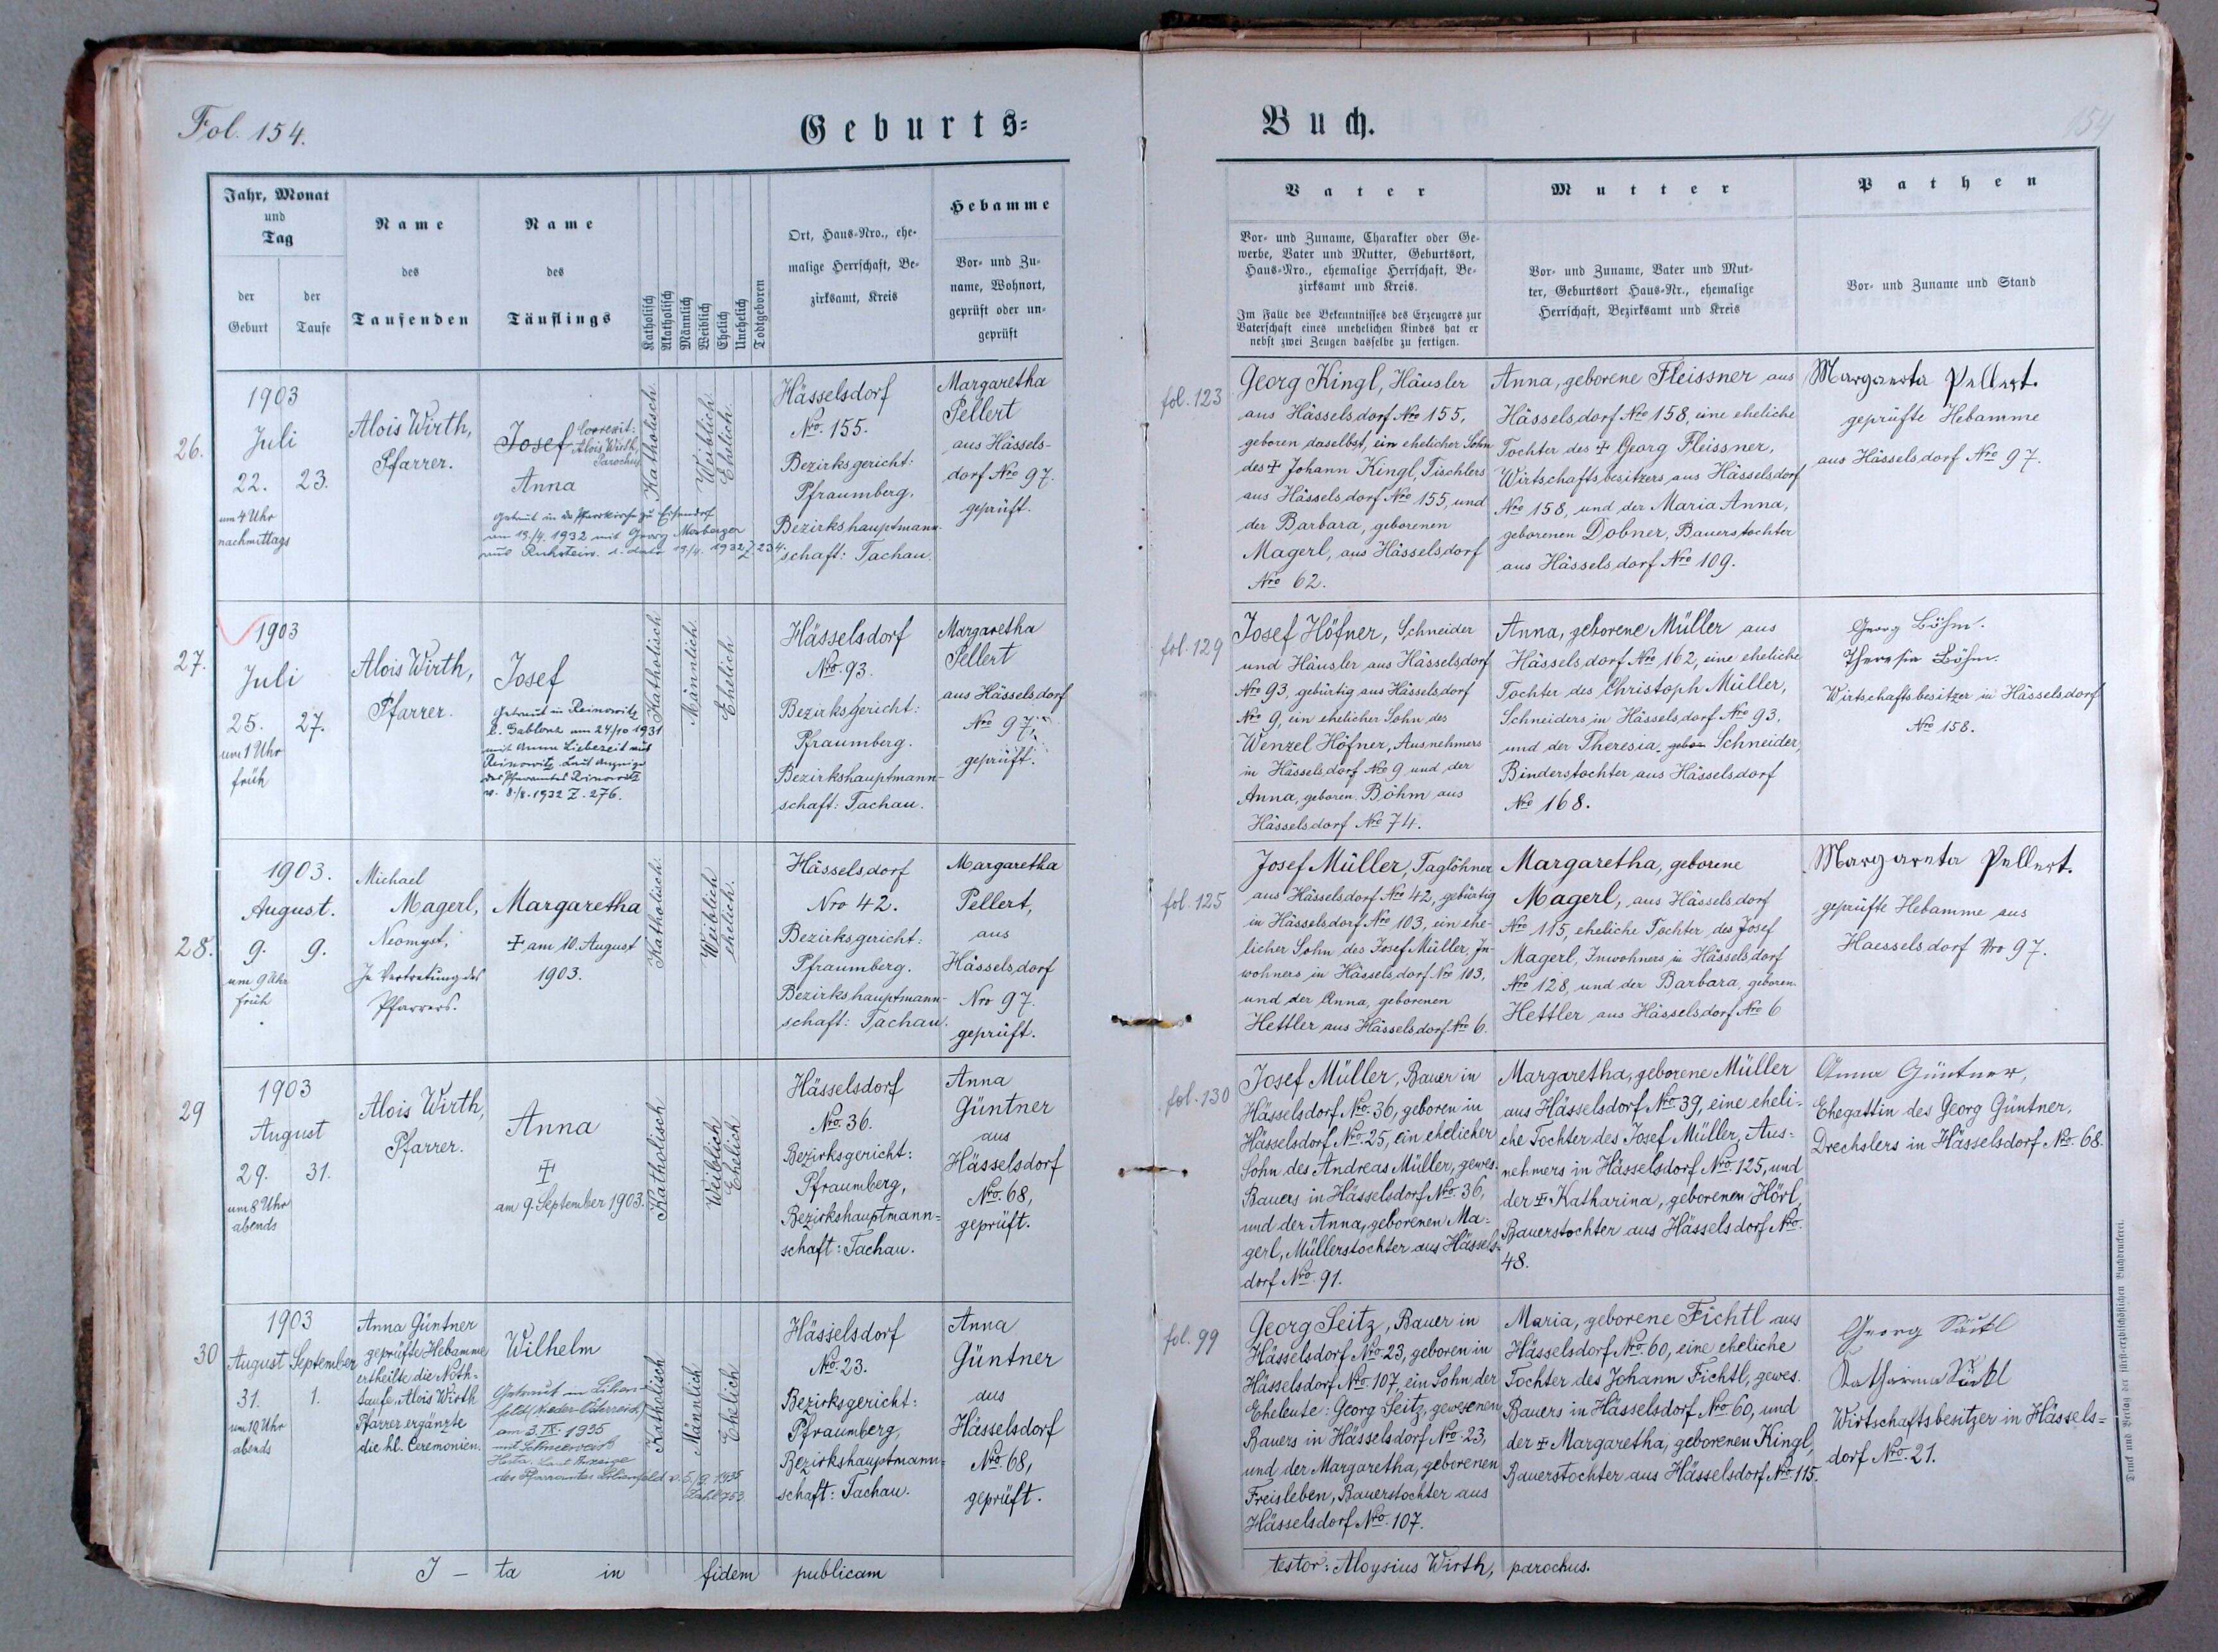 Fol. 154.
Geburts-
Buch.
154
Jahr, Monat
und
Tag
der
Geburt
der
Taufe
Name
des
Taufenden
Name
des
Täuflings
Katholisch
Akatholisch
Männlich
Weiblich
Ehelich
Unehelich
Todtgeboren
Ort, Haus-Nro., ehe-
malige Herrschaft, Be-
zirksamt, Kreis
Hebamme
Vor- und Zu-
name, Wohnort,
geprüft oder un-
geprüft
Vater
Vor- und Zuname, Charakter oder Ge-
werbe, Vater und Mutter, Geburtsort,
Haus-Nro., ehemalige Herrschaft, Be-
zirksamt und Kreis.
Im Falle des Bekenntnisses des Erzeugers zur
Vaterschaft eines unehelichen Kindes hat er
nebst zwei Zeugen dasselbe zu fertigen.
Mutter
Vor- und Zuname, Vater und Mut-
ter, Geburtsort Haus-Nr., ehemalige
Herrschaft, Bezirksamt und Kreis
Pathen
Vor- und Zuname und Stand
26.
1903
Juli
22. 23.
um 4 Uhr
nachmittags
Alois Wirth,
Pfarrer.
Josef
correxit:
Alois Wirth,
Parochus
Anna
Getraut in der Pfarrkirche zu Eisendorf
am 19./4. 1932 mit Georg
aus 19./4. 1932 Z 234.
Katholisch.
Weiblich.
Ehelich.
Hässelsdorf
Nro. 155.
Bezirksgericht:
Pfraumberg.
Bezirkshauptmann-
schaft: Tachau.
Margaretha
Pellert
aus Hässels-
dorf Nro 97.
geprüft.
fol. 123
Georg Kingl, Häusler
aus Hässelsdorf Nro 155,
geboren daselbst, ein ehelicher Sohn
des ✝ Johann Kingl, Tischlers
aus Hässelsdorf Nro 155, und
der Barbara, geborenen
Magerl, aus Hässelsdorf
Nro 62.
Anna, geborene Fleissner aus
Hässelsdorf Nro 158, eine eheliche
Tochter des ✝ Georg Fleissner,
Wirtschaftsbesitzers aus Hässelsdorf
Nro 158, und der Maria Anna,
geborenen Dobner, Bauerstochter
aus Hässelsdorf Nro 109.
Margareta Pellert.
geprüfte Hebamme
aus Hässelsdorf Nro 97.
27.
1903
Juli
25. 27.
um 1 Uhr
früh
Alois Wirth,
Pfarrer.
Josef
Getraut in Reinowitz
b. Gablonz am 24/10 1931
mit Anna Liebezeit aus
Reinowitz. Laut Anzeige
des Pfarramtes Reinowitz
v. 8./8. 1932 Z. 276.
Katholisch
Männlich.
Ehelich
Hässelsdorf
Nro. 93.
Bezirksgericht:
Pfraumberg.
Bezirkshauptmann-
schaft: Tachau.
Margaretha
Pellert
aus Hässelsdorf
Nro 97,
geprüft.
fol. 129
Josef Höfner, Schneider
und Häusler aus Hässelsdorf
Nro 93, gebürtig aus Hässelsdorf
Nro 9, ein ehelicher Sohn des
Wenzel Höfner, Ausnehmers
in Hässelsdorf Nro 9 und der
Anna, geboren. Böhm aus
Hässelsdorf Nro 74.
Anna, geborene Müller aus
Hässelsdorf Nro 162, eine eheliche
Tochter des Christoph Müller,
Schneiders in Hässelsdorf Nro 93.
und der Theresia, gebor. Schneider,
Binderstochter aus Hässelsdorf
Nro 168.
Georg Böhm.
Theresia Böhm.
Wirtschaftsbesitzer in Hässelsdorf
Nro 158.
28.
1903.
August.
9. 9.
um 9 Uhr
früh
Michael
Magerl,
Neomyst,
In Vertretung des
Pfarrers.
Margaretha
✝ am 10. August
1903.
Katholisch.
Weiblich
ehelich.
Hässelsdorf
Nro 42.
Bezirksgericht:
Pfraumberg.
Bezirkshauptmann-
schaft: Tachau.
Margaretha
Pellert,
aus
Hässelsdorf
Nro 97.
geprüft.
fol. 125
Josef Müller, Taglöhner
aus Hässelsdorf Nro 42, gebürtig
in Hässelsdorf Nro 103, ein ehe-
licher Sohn des Josef Müller, In-
wohners in Hässelsdorf Nro 103,
und der Anna, geborenen
Hettler aus Hässelsdorf Nro 6.
Margaretha, geborene
Magerl, aus Hässelsdorf
Nro 115, eheliche Tochter des Josef
Magerl, Inwohners in Hässelsdorf
Nro 128, und der Barbara, geboren.
Hettler aus Hässelsdorf Nro 6
Margareta Pellert.
geprüfte Hebamme aus
Haesselsdorf Nro 97.
29
1903
August
29. 31.
um 8 Uhr
abends
Alois Wirth,
Pfarrer.
Anna
✝
am 9. September 1903.
Katholisch
Weiblich
Ehelich
Hässelsdorf
Nro. 36.
Bezirksgericht:
Pfraumberg,
Bezirkshauptmann=
schaft: Tachau.
Anna
Güntner
aus
Hässelsdorf
Nro. 68,
geprüft.
fol. 130
Josef Müller, Bauer in
Hässelsdorf Nro. 36, geboren in
Hässelsdorf Nro. 25, ein ehelicher
Sohn des Andreas Müller, gewes.
Bauers in Hässelsdorf Nro. 36,
und der Anna, geborenen Ma-
gerl, Müllerstochter aus Hässels-
dorf Nro. 91.
Margaretha, geborene Müller
aus Hässelsdorf Nro. 39, eine eheli-
che Tochter des Josef Müller, Aus=
nehmers in Hässelsdorf Nro. 125, und
der ✝ Katharina, geborenen Hörl,
Bauerstochter aus Hässelsdorf Nro.
48.
Anna Güntner,
Ehegattin des Georg Güntner,
Drechslers in Hässelsdorf Nro. 68.
30
1903
August September
31. 1.
um 10 Uhr
abends
Anna Güntner
geprüfte Hebamme
ertheilte die Noth=
taufe. Alois Wirth
Pfarrer ergänzte
die hl. Ceremonien.
Wilhelm
Getraut in Lilien-
feld (Nieder-Österreich)
am 3. IX. 1935
mit
Laut Anzeige
des Pfarramtes Lilienfeld v. 5./9. 1935
Zahl 753
Katholisch
Männlich
Ehelich
Hässelsdorf
Nro. 23.
Bezirksgericht:
Pfraumberg,
Bezirkshauptmann=
schaft: Tachau.
Anna
Güntner
aus
Hässelsdorf
Nro. 68,
geprüft.
fol. 99
Georg Seitz, Bauer in
Hässelsdorf Nro. 23, geboren in
Hässelsdorf Nro. 107, ein Sohn der
Eheleute: Georg Seitz, gewesenen
Bauers in Hässelsdorf Nro. 23,
und der Margaretha, geborenen
Freisleben, Bauerstochter aus
Hässelsdorf Nro. 107.
Maria, geborene Fichtl aus
Hässelsdorf Nro. 60, eine eheliche
Tochter des Johann Fichtl, gewes.
Bauers in Hässelsdorf Nro. 60, und
der ✝ Margaretha, geborenen Kingl,
Bauerstochter aus Hässelsdorf Nro. 115.
Georg
Katharina
Wirtschaftsbesitzer in Hässels=
dorf Nro. 21.
I – ta in fidem publicam
testor: Aloysius Wirth, parochus.
Druck und Verlag der fürst-erzbischöflichen Buchdruckerei.